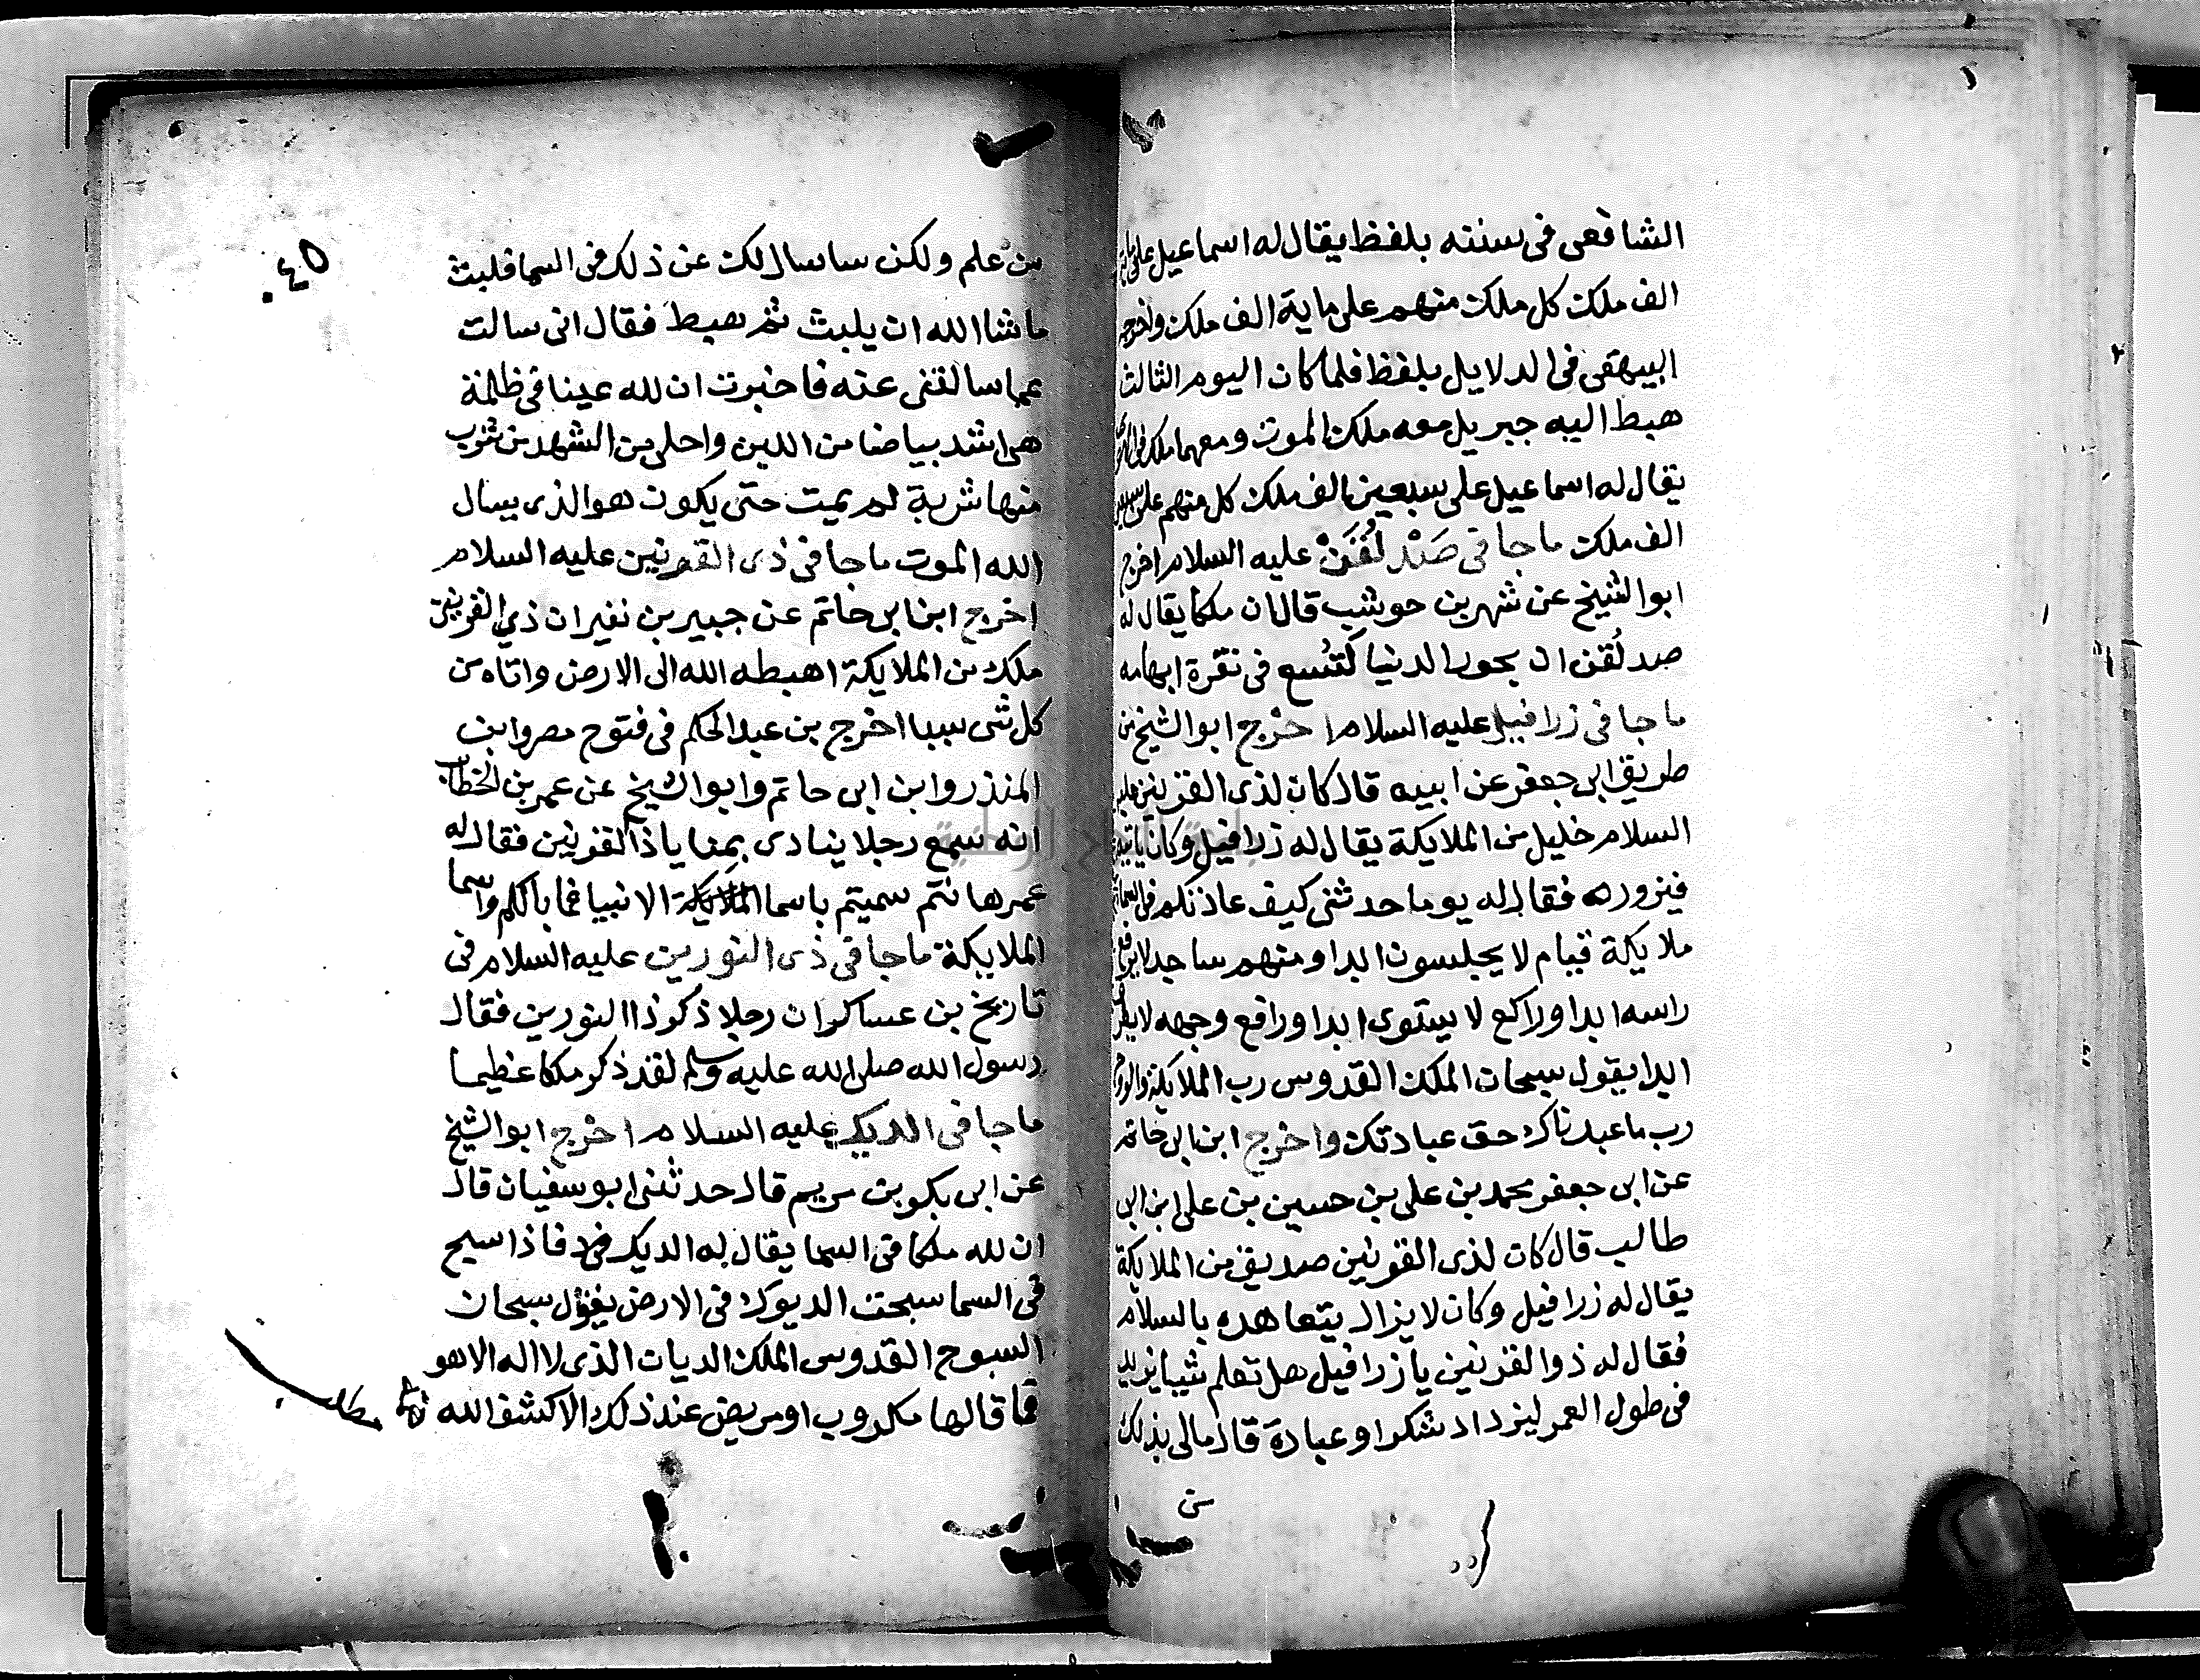 الشافعى فى سننه بلفظ يقال له اسماعيل على ماية
الف ملك كل ملك منهم على ماية الف ملك واخرج
البيهقى فى الدلايل بلفظ فلما كان اليوم الثالث
هبط اليه جبريل معه ملك الموت ومعهما ملك فى الهوى
يقال له اسماعيل على سبعين الف ملك كل منهم على سبعين
الف ملك ما جا فى صَنْد لُقُنَنْ عليه السلام اخرج
ابو الشيخ عن شهر بن حوشب قال ان ملكا يقال له
صد لُقن ان بحور الدنيا لتسع فى نقرة ابهامه
ما جا فى زرافيل عليه السلام اخرج ابو الشيخ من
طريق ابى جعفر عن ابيه قال كان لذى القرنين عليه
السلام خليل من الملايكة يقال له زرافيل وكان ياتيه
فيزوره فقال له يوما حدثنى كيف عبادتكم فى السما
ملايكة قيام لا يجلسون ابدا ومنهم ساجد لا يرفع
راسه ابدا وراكع لا يستوى ابدا ورافع وجهه لا
ابدا يقول سبحان الملك القدوس رب الملايكة والروح
رب ما عبدناك حق عبادتك واخرج ابن ابى حاتم
عن ابى جعفر محمد بن على بن حسين بن على ابن ابى
طالب قال كان لذى القرنين صديق من الملايكة
يقال له زرافيل وكان لا يزال يتعاهده بالسلام
فقال له ذو القرنين يا زرافيل هل تعلم شيا يزيد
فى طول العمر ليزداد شكرا وعبادة قال ما لى بذلك
من
٤٥
من علم ولكن ساسال لك عن ذلك فى السما فلبث
ما شا الله ان يلبث ثم هبط فقال انى سالت
عما سالتنى عنه فاخبرت ان لله عينا فى ظلمة
هى اشد بياضا من اللبن واحلى من الشهد من شرب
منها شربة لم يمت حتى يكون هو الذى يسال
الله الموت ما جا فى ذى القرنين عليه السلام
اخرج ابن ابى حاتم عن جبير بن نفير ان ذى القرنين
ملك من الملايكة اهبطه الله الى الارض واتاه من
كل شى سببا اخرج بن عبد الحكم فى فتوح مصر وابن
المنذر وابن ابى حاتم وابو الشيخ عن عمر بن الخطاب
انه سمع رجلا ينادى بمنا يا ذا القرنين فقال له
عمر ها انتم سميتم باسما الملايكة الانبيا فما بالكم واسما
الملايكة ما جا فى ذى النورين عليه السلام فى
تاريخ بن عساكر ان رجلا ذكر ذا النورين فقال
رسول الله صلى الله عليه وسلم لقد ذكر ملكا عظيما
ما جا فى الديك عليه السلام اخرج ابو الشيخ
عن ابى بكر بن مريم قال حدثنى ابو سفيان قال
ان لله ملكا فى السما يقال له الديك فاذا سبح
فى السما سبحت الديوك فى الارض يقول سبحان
السبوح القدوس الملك الديان الذى لا اله الا هو
فما قالها مكروب او مريض عند ذلك الا كشف الله
مطلب